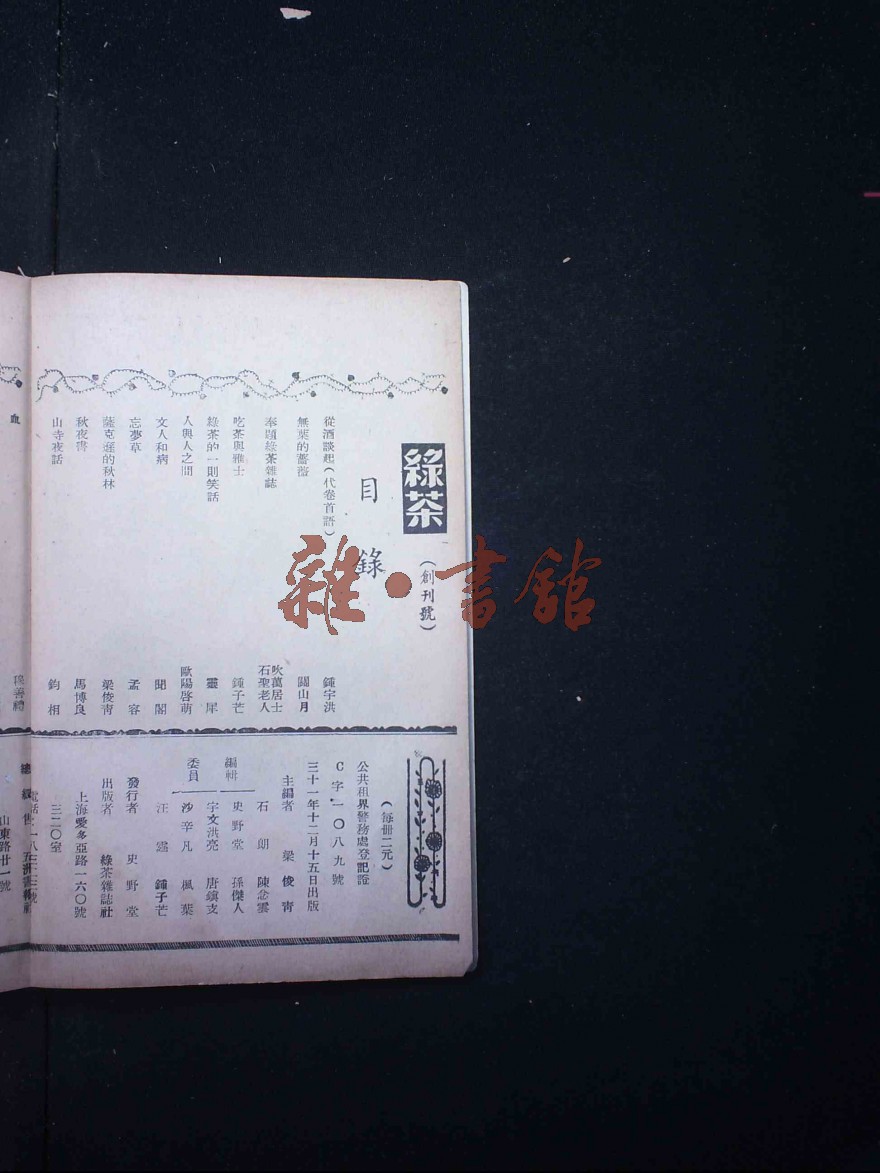 綠茶
（創刊號）
目錄
從酒談起（代卷首語） 鍾宇洪
無葉的薔薇 關山月
奉題綠茶雜誌 吹萬居士 石聖老人
吃茶與雅士 鍾子芒
綠茶的一則笑話 靈犀
人與人之間 歐陽啓萌
文人和病 聞閣
忘夢草 孟容
薩克遜的秋林 梁俊青
秋夜書 馬博良
山寺夜話 鈞相
血
（每冊二元）
公共租界警務處登記證
C字一〇八九號
三十一年十二月十五日出版
主編者 梁俊青
編輯委員
石朗 陳念雲
史野堂 孫傑人
宇文洪亮 唐鎮支
沙辛凡 楓葉
汪霆 鍾子芒
發行者 史野堂
出版者 綠茶雜誌社
上海愛多亞路一六〇號
三二〇室
總經售 五洲書報社
山東路廿一號
雜·書舘